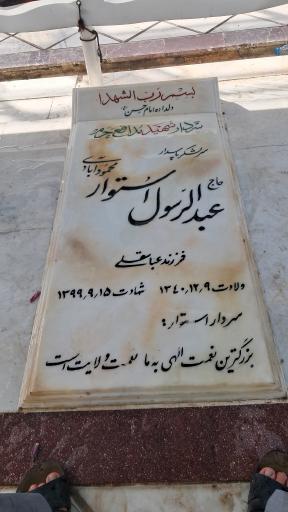 بسم رب الشهدا
دلداده امام حسن(ع)
سردار شهید مدافع حرم
سرلشکر پاسدار
حاج عبدالرسول استوار محمودآبادی
فرزند عباسقلی
ولادت ۱۳۴۰.۱۲.۹ شهادت ۱۳۹۹.۹.۱۵
سردار استوار:
بزرگترین نعمت الهی به ما نعمت ولایت است